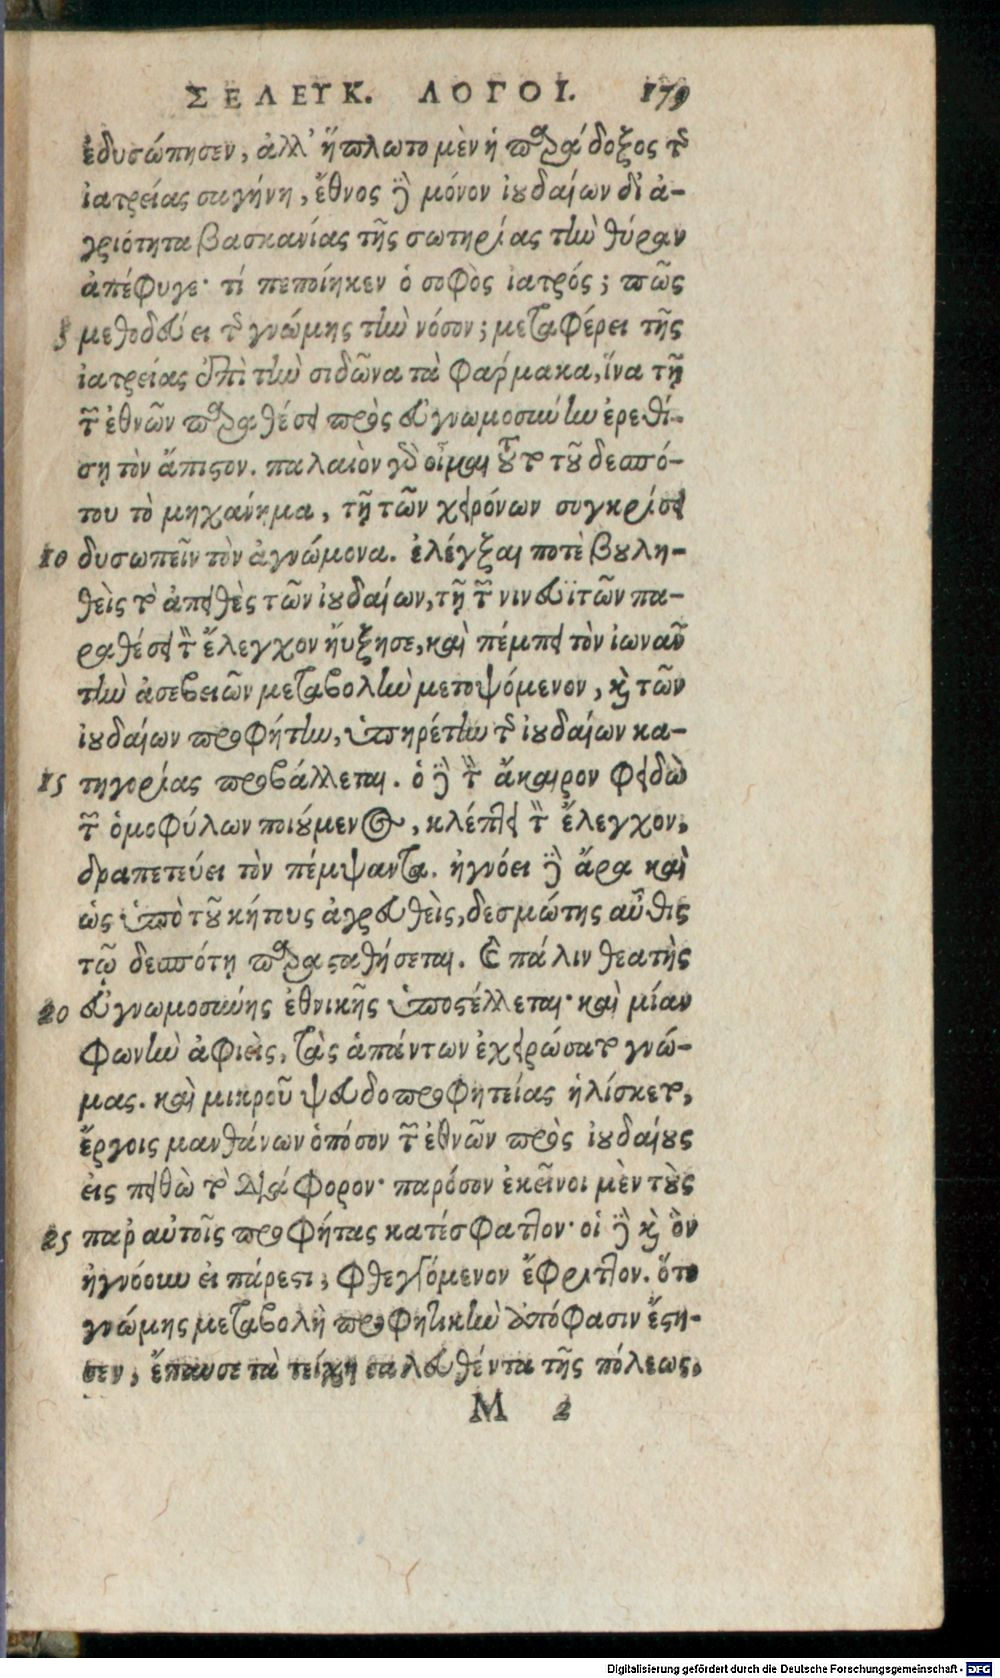 ΣΕΛΕΥΚ. ΛΟΓΟΙ. 179
ἐδυσώπησεν, ἀλλ' ἥπλωτο μὲν ἡ παράδοξος τῆς
ἰατρείας σαγήνη, ἔθνος δὲ μόνον ἰουδαίων δι' ἀ-
γριότητα βασκανίας τῆς σωτηρίας τὴν θύραν
ἀπέφυγε· τί πεποίηκεν ὁ σοφὸς ἰατρός; πῶς
5 μεθοδεύει τῆς γνώμης τὴν νόσον; μεταφέρει τῆς
ἰατρείας ἐπὶ τὴν σιδῶνα τὰ φάρμακα, ἵνα τῇ
τῶν ἐθνῶν παραθέσει πρὸς εὐγνωμοσύνην ἐρεθί-
σῃ τὸν ἄπιστον. παλαιὸν γὰρ οἶμαι τοῦτο τοῦ δεσπό-
του τὸ μηχάνημα, τῇ τῶν χειρόνων συγκρίσει
10 δυσωπεῖν τὸν ἀγνώμονα. ἐλέγξαι ποτὲ βουλη-
θεὶς τὸ ἀπειθὲς τῶν ἰουδαίων, τῇ τῶν νινευϊτῶν πα-
ραθέσει τὸν ἔλεγχον ηὔξησε, καὶ πέμπει τὸν ἰωνᾶν
τὴν ἀσεβειῶν μεταβολὴν μετοψόμενον, καὶ τῶν
ἰουδαίων προφήτην, ὑπηρέτην τῆς ἰουδαίων κα-
15 τηγορίας προβάλλεται. ὁ δὲ τὸν ἄκαιρον φειδὼ
τῶν ὁμοφύλων ποιούμενος, κλέπτει τὸν ἔλεγχον,
δραπετεύει τὸν πέμψαντα. ἠγνόει δὲ ἄρα καὶ
ὡς ὑπὸ τοῦ κήτους ἀγρευθεὶς, δεσμώτης αὖθις
τῷ δεσπότῃ παρασταθήσεται. καὶ πάλιν θεατὴς
20 εὐγνωμοσύνης ἐθνικῆς ὑποστέλλεται· καὶ μίαν
φωνὴν ἀφιεὶς, τὰς ἁπάντων ἐχειρώσατο γνώ-
μας. καὶ μικροῦ ψευδοπροφητείας ἡλίσκετο,
ἔργοις μανθάνων ὁπόσον τῶν ἐθνῶν πρὸς ἰουδαίους
εἰς πειθὼ τὸ διάφορον· παρόσον ἐκεῖνοι μὲν τοὺς
25 παρ' αὐτοῖς προφήτας κατέσφαττον· οἱ δὲ καὶ ὃν
ἠγνόουν εἰ πάρεστι, φθεγγόμενον ἔφριττον. ὅτε
γνώμης μεταβολὴ προφητικὴν ἀπόφασιν ἔστη-
σεν, ἔπαυσε τὰ τείχη σαλευθέντα τῆς πόλεως,
M 2
Digitalisierung gefördert durch die Deutsche Forschungsgemeinschaft - DFG